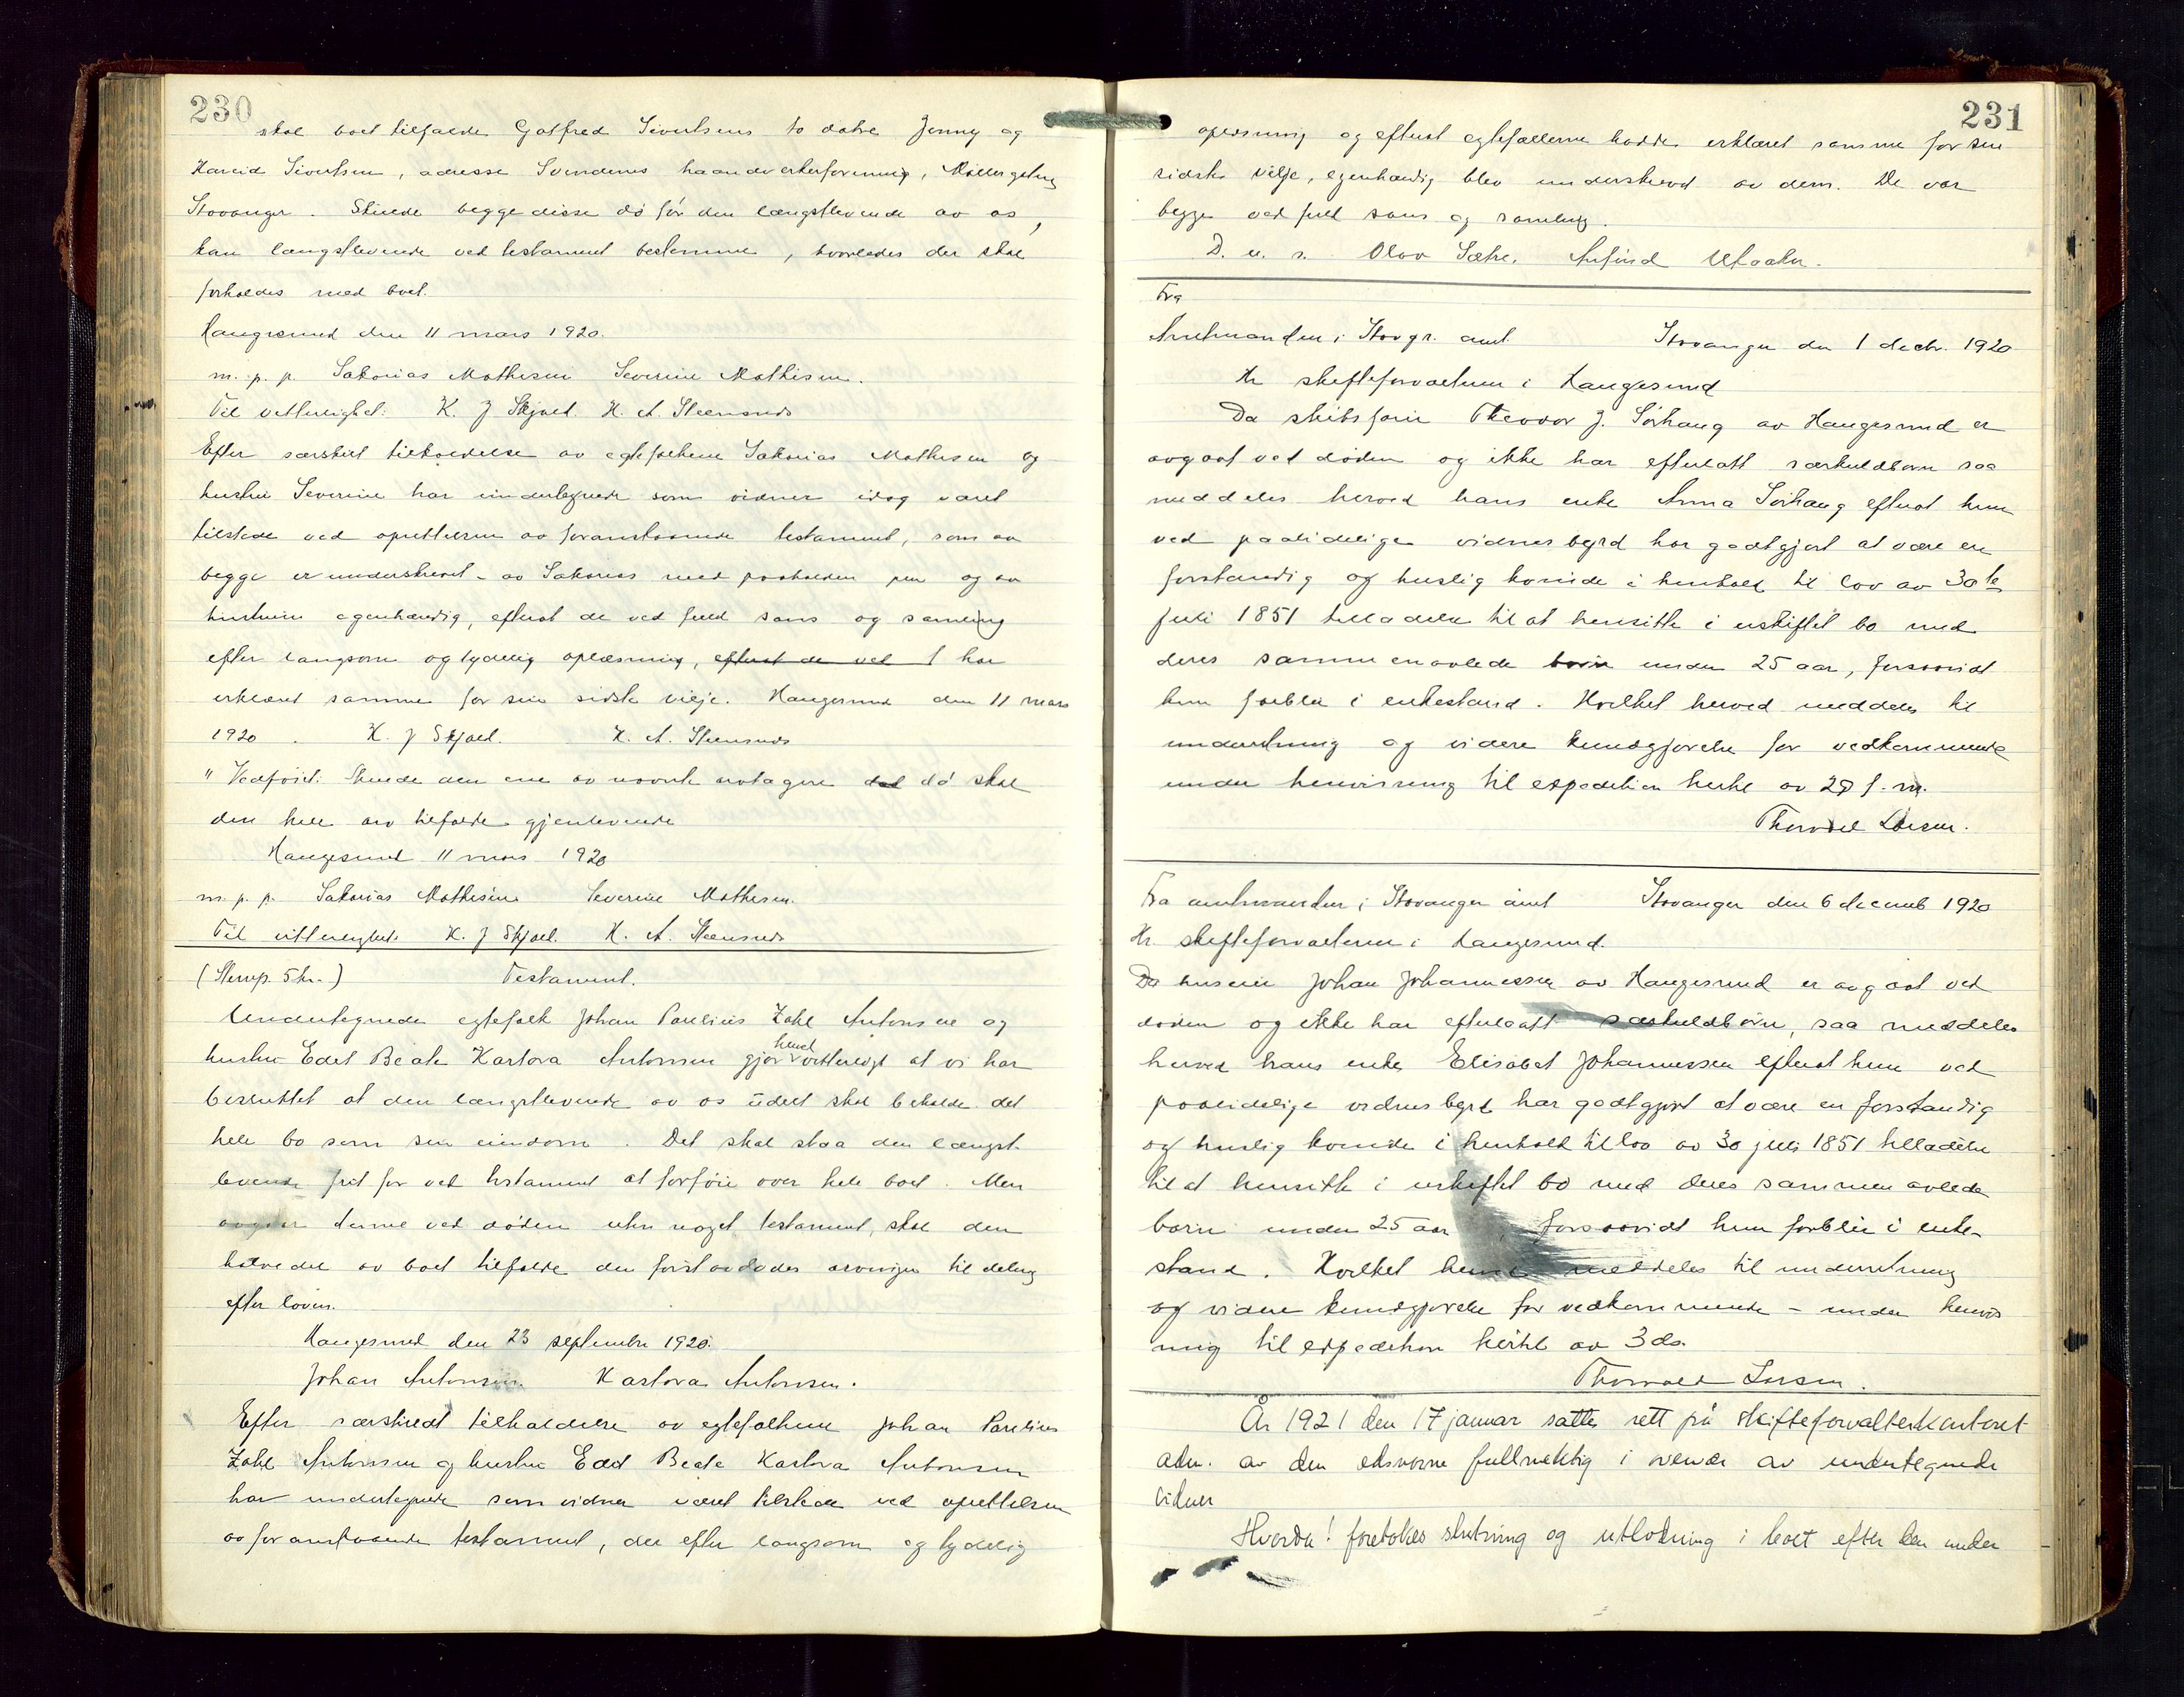 230
skal boet tilfalde Gotfred Sivertsens to døtre Jenny og
Harid Sivertsen, adresse Svendenes haandverkerforening, Møllergaten
Stavanger. Skulde begge disse dø før den længstlevende av os,
kan længstlevende ved testament bestemme, hvorledes der skal
forholdes med boet.
Haugesund den 11 mars 1920.
m. p. p. Sakarias Mathisen Severine Mathisen.
Til vitterlighet: K. J Skjoll. H. A. Steensnes
Efter særskilt tilkaldelse av egtefolkene Sakarias Mathisen og
hustru Severine har undertegnede som vidner idag været
tilstede ved oprettelsen av foranstaaende testament, som av
begge er underskrevet - av Sakarias med paaholden pen og av
hustruen egenhændig, efterat de ved fuld sans og samling
efter langsom og tydelig oplæsning, efterat de ved f har
erklæret samme for sin sidste vilje. Haugesund den 11 mars
1920. K. J Skjoll. H. A. Steensnes
" Vedføiet: Skulde den ene av nævnte arvtagere død dø skal
den hele arv tilfalde gjenlevende
Haugesund 11 mars 1920
m. p. p. Sakarias Mathisen Severine Mathisen.
Til vitterlighet: K. J Skjoll. H. A. Steensnes
(Stemp. 5 kr.) Testament.
Undertegnede egtefolk Johan Paulius Zahl Antonsen og
hustru Edel Beate Karlova Antonsen gjør herved vitterligt at vi har
besluttet at den længstlevende av os udelt skal beholde det
hele bo som sin eiendom. Det skal staa den længst-
levende frit for ved testament at forføie over hele boet. Men
avgaar denne ved døden uten noget testament, skal den
halvedel av boet tilfalde den førstavdødes arvinger til deling
efter loven.
Haugesund den 23 september 1920.
Johan Antonsen Karlova Antonsen.
Efter særskildt tilkaldelse av egtefolkene Johan Paulius
Zahl Antonsen og hustru Edel Beate Karlova Antonsen
har undertegnede som vidner været tilstede ved oprettelsen
av foranstaaende testament, der efter langsom og tydelig
231
oplæsning og efterat egtefællerne hadde erklæret samme for sin
sidste vilje, egenhændig blev underskrevet av dem. De var
begge ved fuld sans og samling.
D. u. s. Olav Sætre. Arfind Utaaker.
Fra
Amtmanden i Stavgr. amt Stavanger den 1 decbr. 1920
Hr skifteforvalteren i Haugesund
Da skibsfører Theodor J. Sørhaug av Haugesund er
avgaat ved døden og ikke har efterlatt særkuldbørn saa
meddeles herved hans enke Anna Sørhaug efterat hun
ved paalidelige vidnesbyrd har godtgjort at være en
forstandig og huslig kvinde i henhold til lov av 30te
juli 1851 tilladelse til at hensitte i uskiftet bo med
deres sammenavlede børn under 25 aar, forsaavidt
hun forblir i enkestand. Hvilket herved meddeles til
underretning og videre kundgjørelse for vedkommende
under henvisning til expedition hertil av 29 f. m.
Thorvald Larsen.
Fra amtmanden i Stavanger amt Stavanger den 6 decemb 1920
Hr. skifteforvalteren i Haugesund.
Da huseier Johan Johannessen av Haugesund er avgaat ved
døden og ikke har efterlatt særkuldbørn, saa meddeles
herved hans enke Elisabet Johannessen efterat hun ved
paalidelige vidnesbyrd har godtgjort at være en forstandig
og huslig kvinde i henhold til lov av 30 juli 1851 tilladelse
til at hensitte i uskiftet bo med deres sammenavlede
børn under 25 aar, forsaavidt hun forblir i enke-
stand. Hvilket herved meddeles til underretning
og videre kundgjørelse for vedkommende - under henvis
ning til expedition hertil av 3 ds.
Thorvald Larsen.
År 1921 den 17 januar sattes rett på skifteforvalterkontoret
adm. av den edsvorne fullmektig i overvær av undertegnede
vidner
Hvorda! foretokes slutning og utlodning i boet efter den under